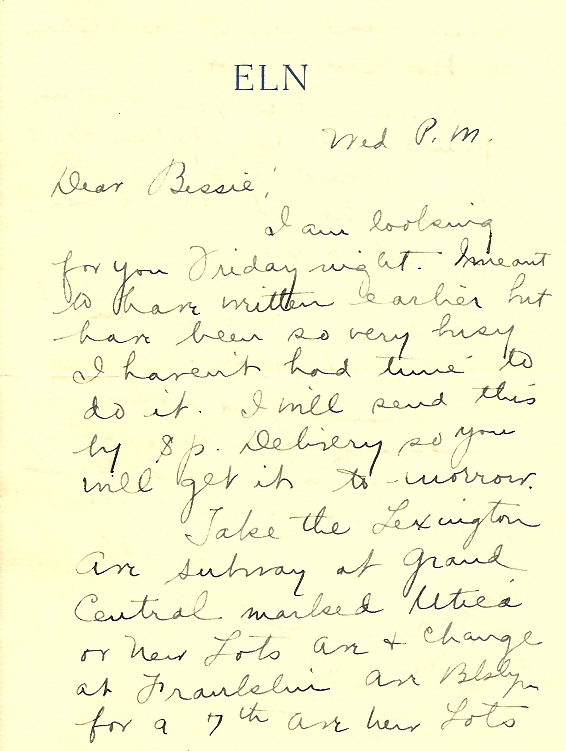 ELN
Wed P.M.
Dear Bessie;
I am looking
for you Friday night. I meant
to have written earlier but
have been so very busy
I haven't had time to
do it. I will send this
by Sp. Delivery so you
will get it to-morrow.
Take the Lexington
Ave subway at Grand
Central marked Utica
or New Lots Ave & change
at Franklin Ave Bklyn
for a 7th Ave New Lots